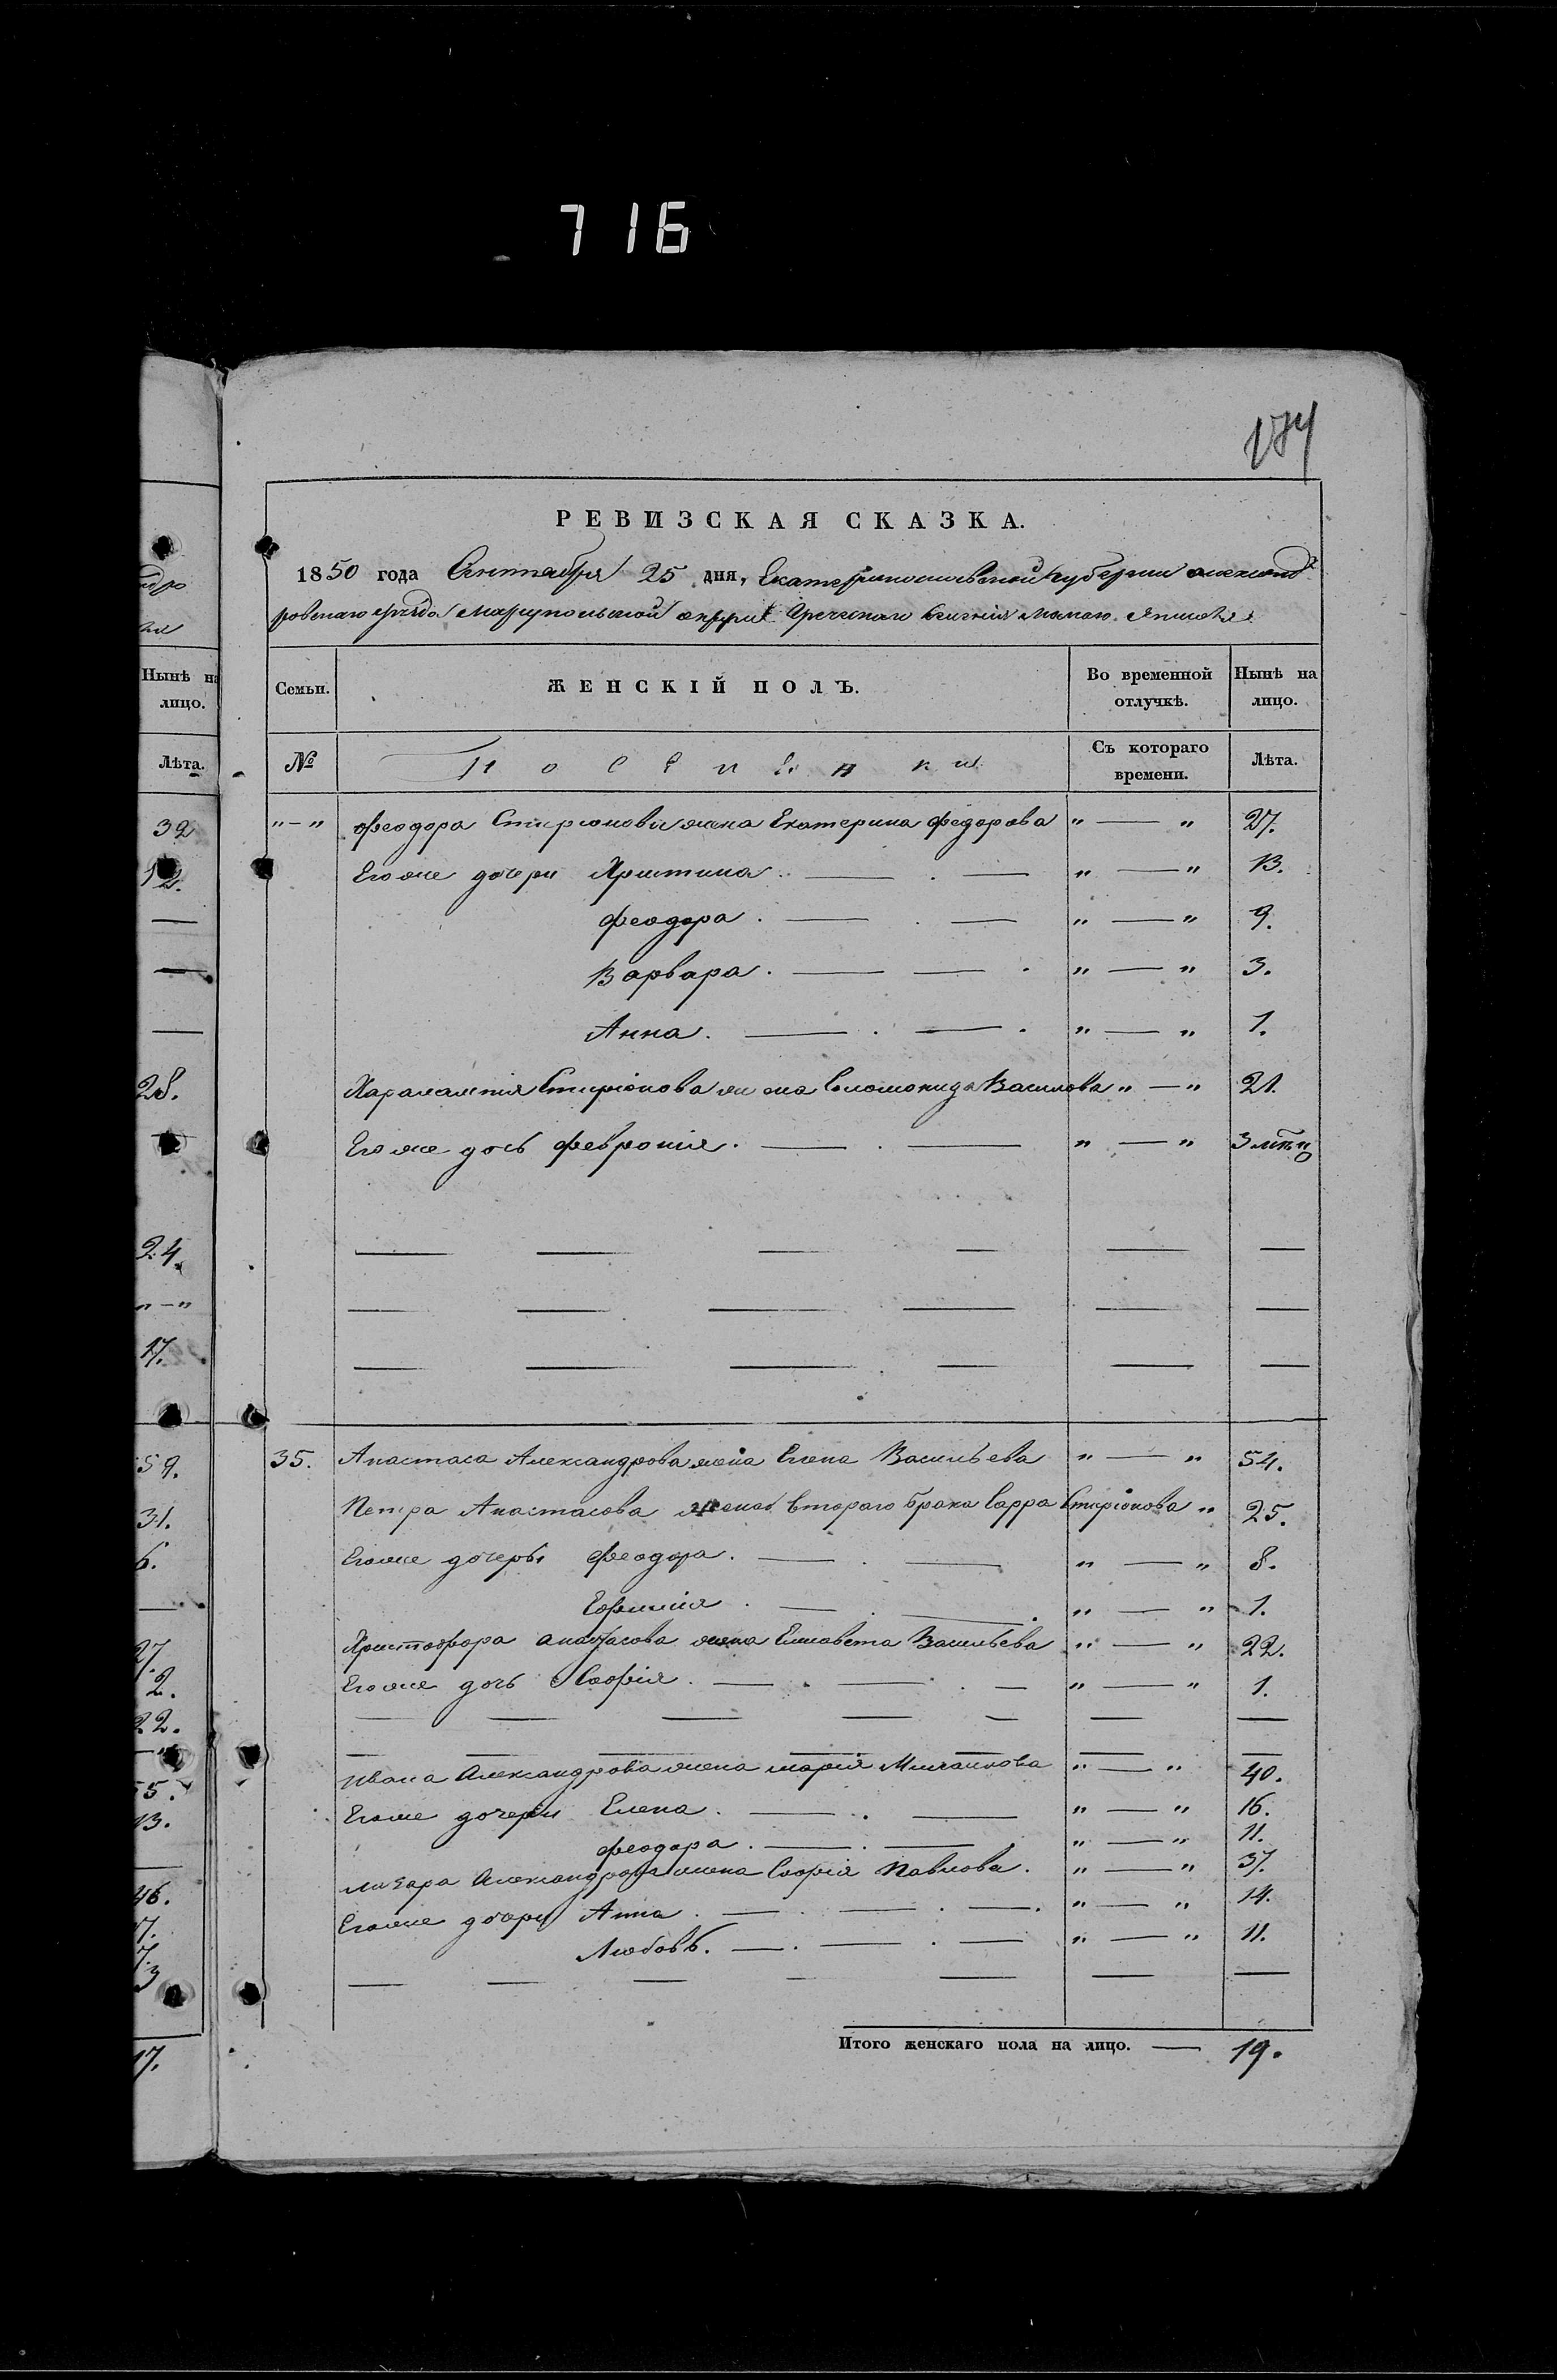 716
174
РЕВИЗСКАЯ СКАЗКА.
1850 года Сентября 25 дня, Екатеринославской губернии александ
ровскаго уѣзда Мариупольской округи Греческаго селенія Малаго Янисоля
Семьи. ЖЕНСКІЙ ПОЛЪ. Во временной отлучкѣ. Нынѣ на лицо.
№ Поселянки Съ котораго времени. Лѣта.
"—" Феодора Спиріонова жена Екатерина Федорова "—" 27.
Его же дочери Христина. — . — "—" 13.
Феодора. — . — "—" 9.
Варвара. — — . "—" 3.
Анна. — . — . "—" 1.
Харалампія Спиріонова жена Соломонида Василова "—" 21.
Его же дочь Февронія. — . — "—" 3 мѣц
35. Анастаса Александрова жена Елена Васильева "—" 54.
Петра Анастасова жена втораго брака Сарра Спиріонова " 25.
Его же дочеры Феодора. — . — "—" 8.
Ефимія . — . — . "—" 1.
Христофора Анастасова жена Елисавета Васильева "—" 22.
Его же дочь Софія. — . — . — "—" 1.
Ивана Александрова жена Марія "—" 40.
Его же дочери Елена. — . — "—" 16.
Феодора. — . — . "—" 11.
Лазара Александрова жена Софія Павлова. "—" 37.
Его же дочери Анна . — . — . — . "—" 14.
Любовь. — . — . — "—" 11.
Итого женскаго пола на лицо. — 19.
Нынѣ на
лицо.
Лѣта.
32
12.
28.
24.
"—"
17.
59.
31.
6.
27.
2.
22.
55.
13.
46.
17.